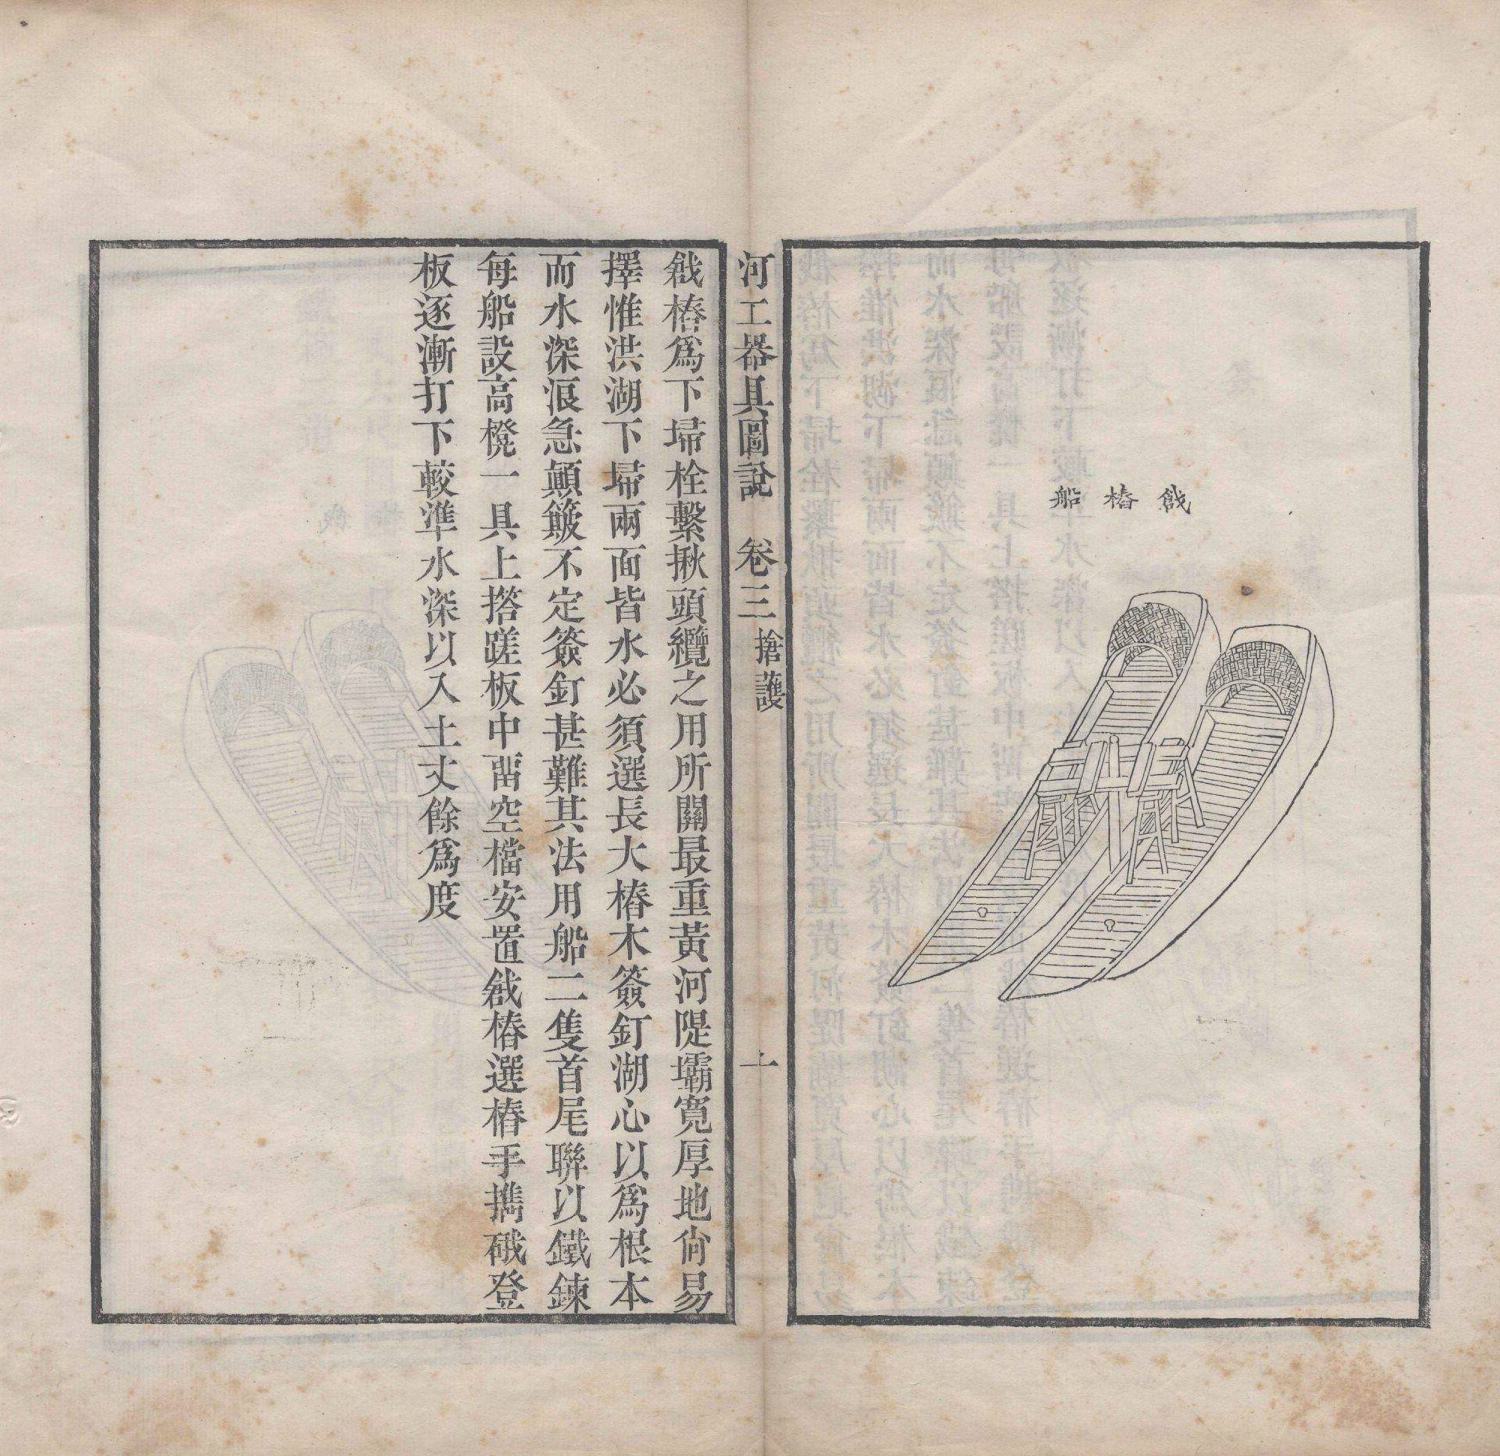 戧樁船
河工器具圖說 卷三 搶護 十
戧樁爲下埽栓繫揪頭纜之用所關最重黃河隄壩寬厚地尙易
擇惟洪湖下埽兩面皆水必須選長大樁木簽釘湖心以爲根本
而水深浪急顚簸不定簽釘甚難其法用船二隻首尾聯以鐵鍊
每船設高櫈一具上搭蹉板中畱空檔安置戧樁選樁手攜硪登
板逐漸打下較準水深以入土丈餘爲度